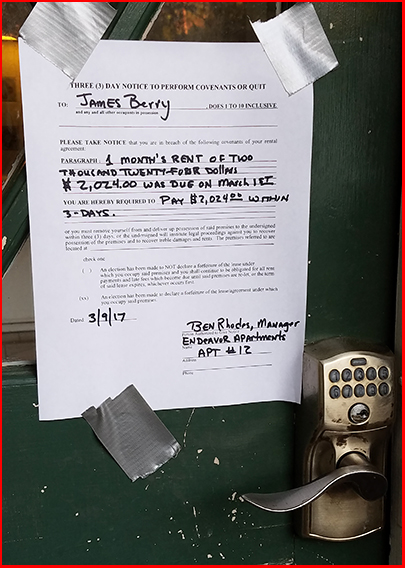 THREE (3) DAY NOTICE TO PERFORM COVENANTS OR QUIT
TO: JAMES Berry , DOES 1 TO 10 INCLUSIVE
and any and all other occupants in possession
PLEASE TAKE NOTICE that you are in breach of the following covenants of your rental
agreement
PARAGRAPH : 1 MONTH'S RENT OF TWO
THOUSAND TWENTY-FOUR DOLLARS
$ 2,024.00 WAS DUE ON MARCH 1ST
YOU ARE HEREBY REQUIRED TO PAY $2,024.00 WITHIN
3-DAYS.
or you must remove yourself from and deliver up possession of said premises to the undersigned
within three (3) days, or the undersigned will institute legal proceedings against you to recover
possession of the premises and to recover treble damages and rents. The premises referred to are
located at
check one
( ) An election has been made to NOT declare a forfeiture of the lease under
which you occupy said premises and you shall continue to be obligated for all rent
payments and late fees which become due until said premises are re-let, or the term
of said lease expires, whichever occurs first.
(xx) An election has been made to declare a forfeiture of the lease/agreement under which
you occupy said premises.
Dated: 3/9/17
BEN Rhodes, Manager
ENDEAVOR APARTMENTS
Name
APT #12
Address
Phone